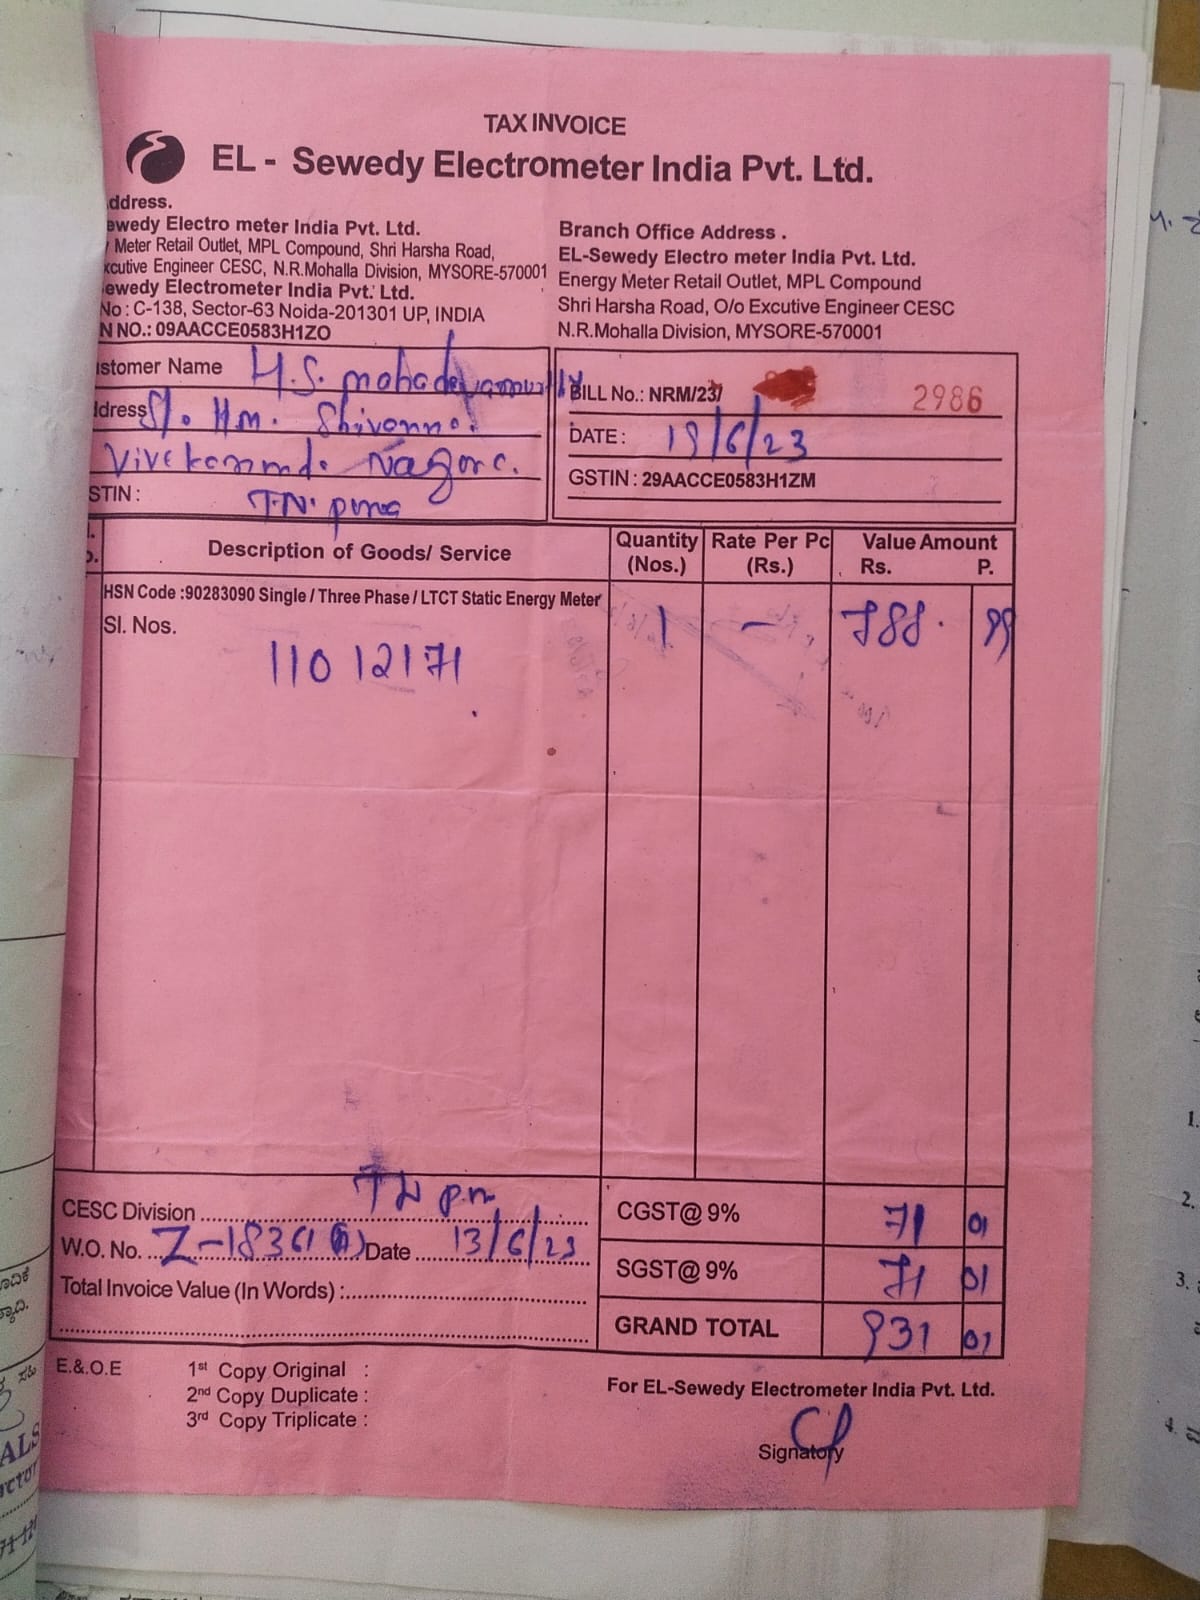 TAX INVOICE
EL - Sewedy Electrometer India Pvt. Ltd.
ddress.
ewedy Electro meter India Pvt. Ltd.
Meter Retail Outlet, MPL Compound, Shri Harsha Road,
xcutive Engineer CESC, N.R.Mohalla Division, MYSORE-570001
ewedy Electrometer India Pvt. Ltd.
No : C-138, Sector-63 Noida-201301 UP, INDIA
N NO.: 09AACCE0583H1ZO
Branch Office Address .
EL-Sewedy Electro meter India Pvt. Ltd.
Energy Meter Retail Outlet, MPL Compound
Shri Harsha Road, O/o Excutive Engineer CESC
N.R.Mohalla Division, MYSORE-570001
ustomer Name H.S. mahadevamurthy
ddress S/o. Hm. Shivanna.
Vivekananda Nagara.
STIN : T.N. pura
BILL No.: NRM/23/ 2986
DATE : 19/6/23
GSTIN : 29AACCE0583H1ZM
Description of Goods/ Service Quantity (Nos.) Rate Per Pc (Rs.) Value Amount Rs. P.
HSN Code :90283090 Single / Three Phase / LTCT Static Energy Meter 1 - 788. 99
Sl. Nos.
11012171
CESC Division T N pura
W.O. No. Z-1836 Date 13/6/23
Total Invoice Value (In Words) :
CGST@ 9% 71 01
SGST@ 9% 71 01
GRAND TOTAL 931 01
E.&.O.E
1st Copy Original :
2nd Copy Duplicate :
3rd Copy Triplicate :
For EL-Sewedy Electrometer India Pvt. Ltd.
Signatory